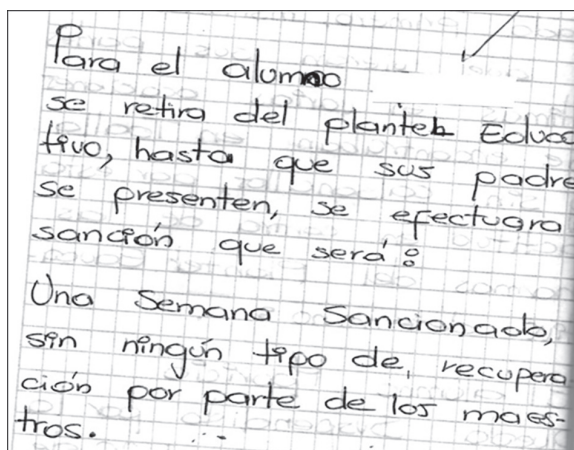 Para el alumno
se retira del plantel Educa
tivo, hasta que sus padre
se presenten, se efectuara
sanción que será:
Una Semana Sancionado,
sin ningún tipo de, recupera
ción por parte de los maes-
tros.